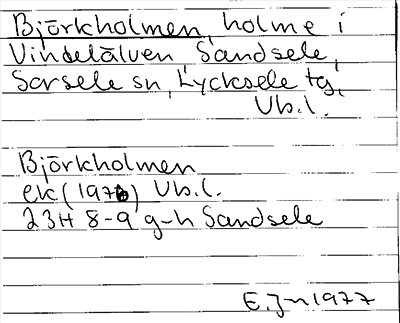 Björkholmen, holme i
Vindelälven, Sandsele,
Sorsele sn, Lycksele tg,
Vb.l.
Björkholmen
ek (1976) Vb.l.
23H 8-9 g-h Sandsele
E.Jn 1977